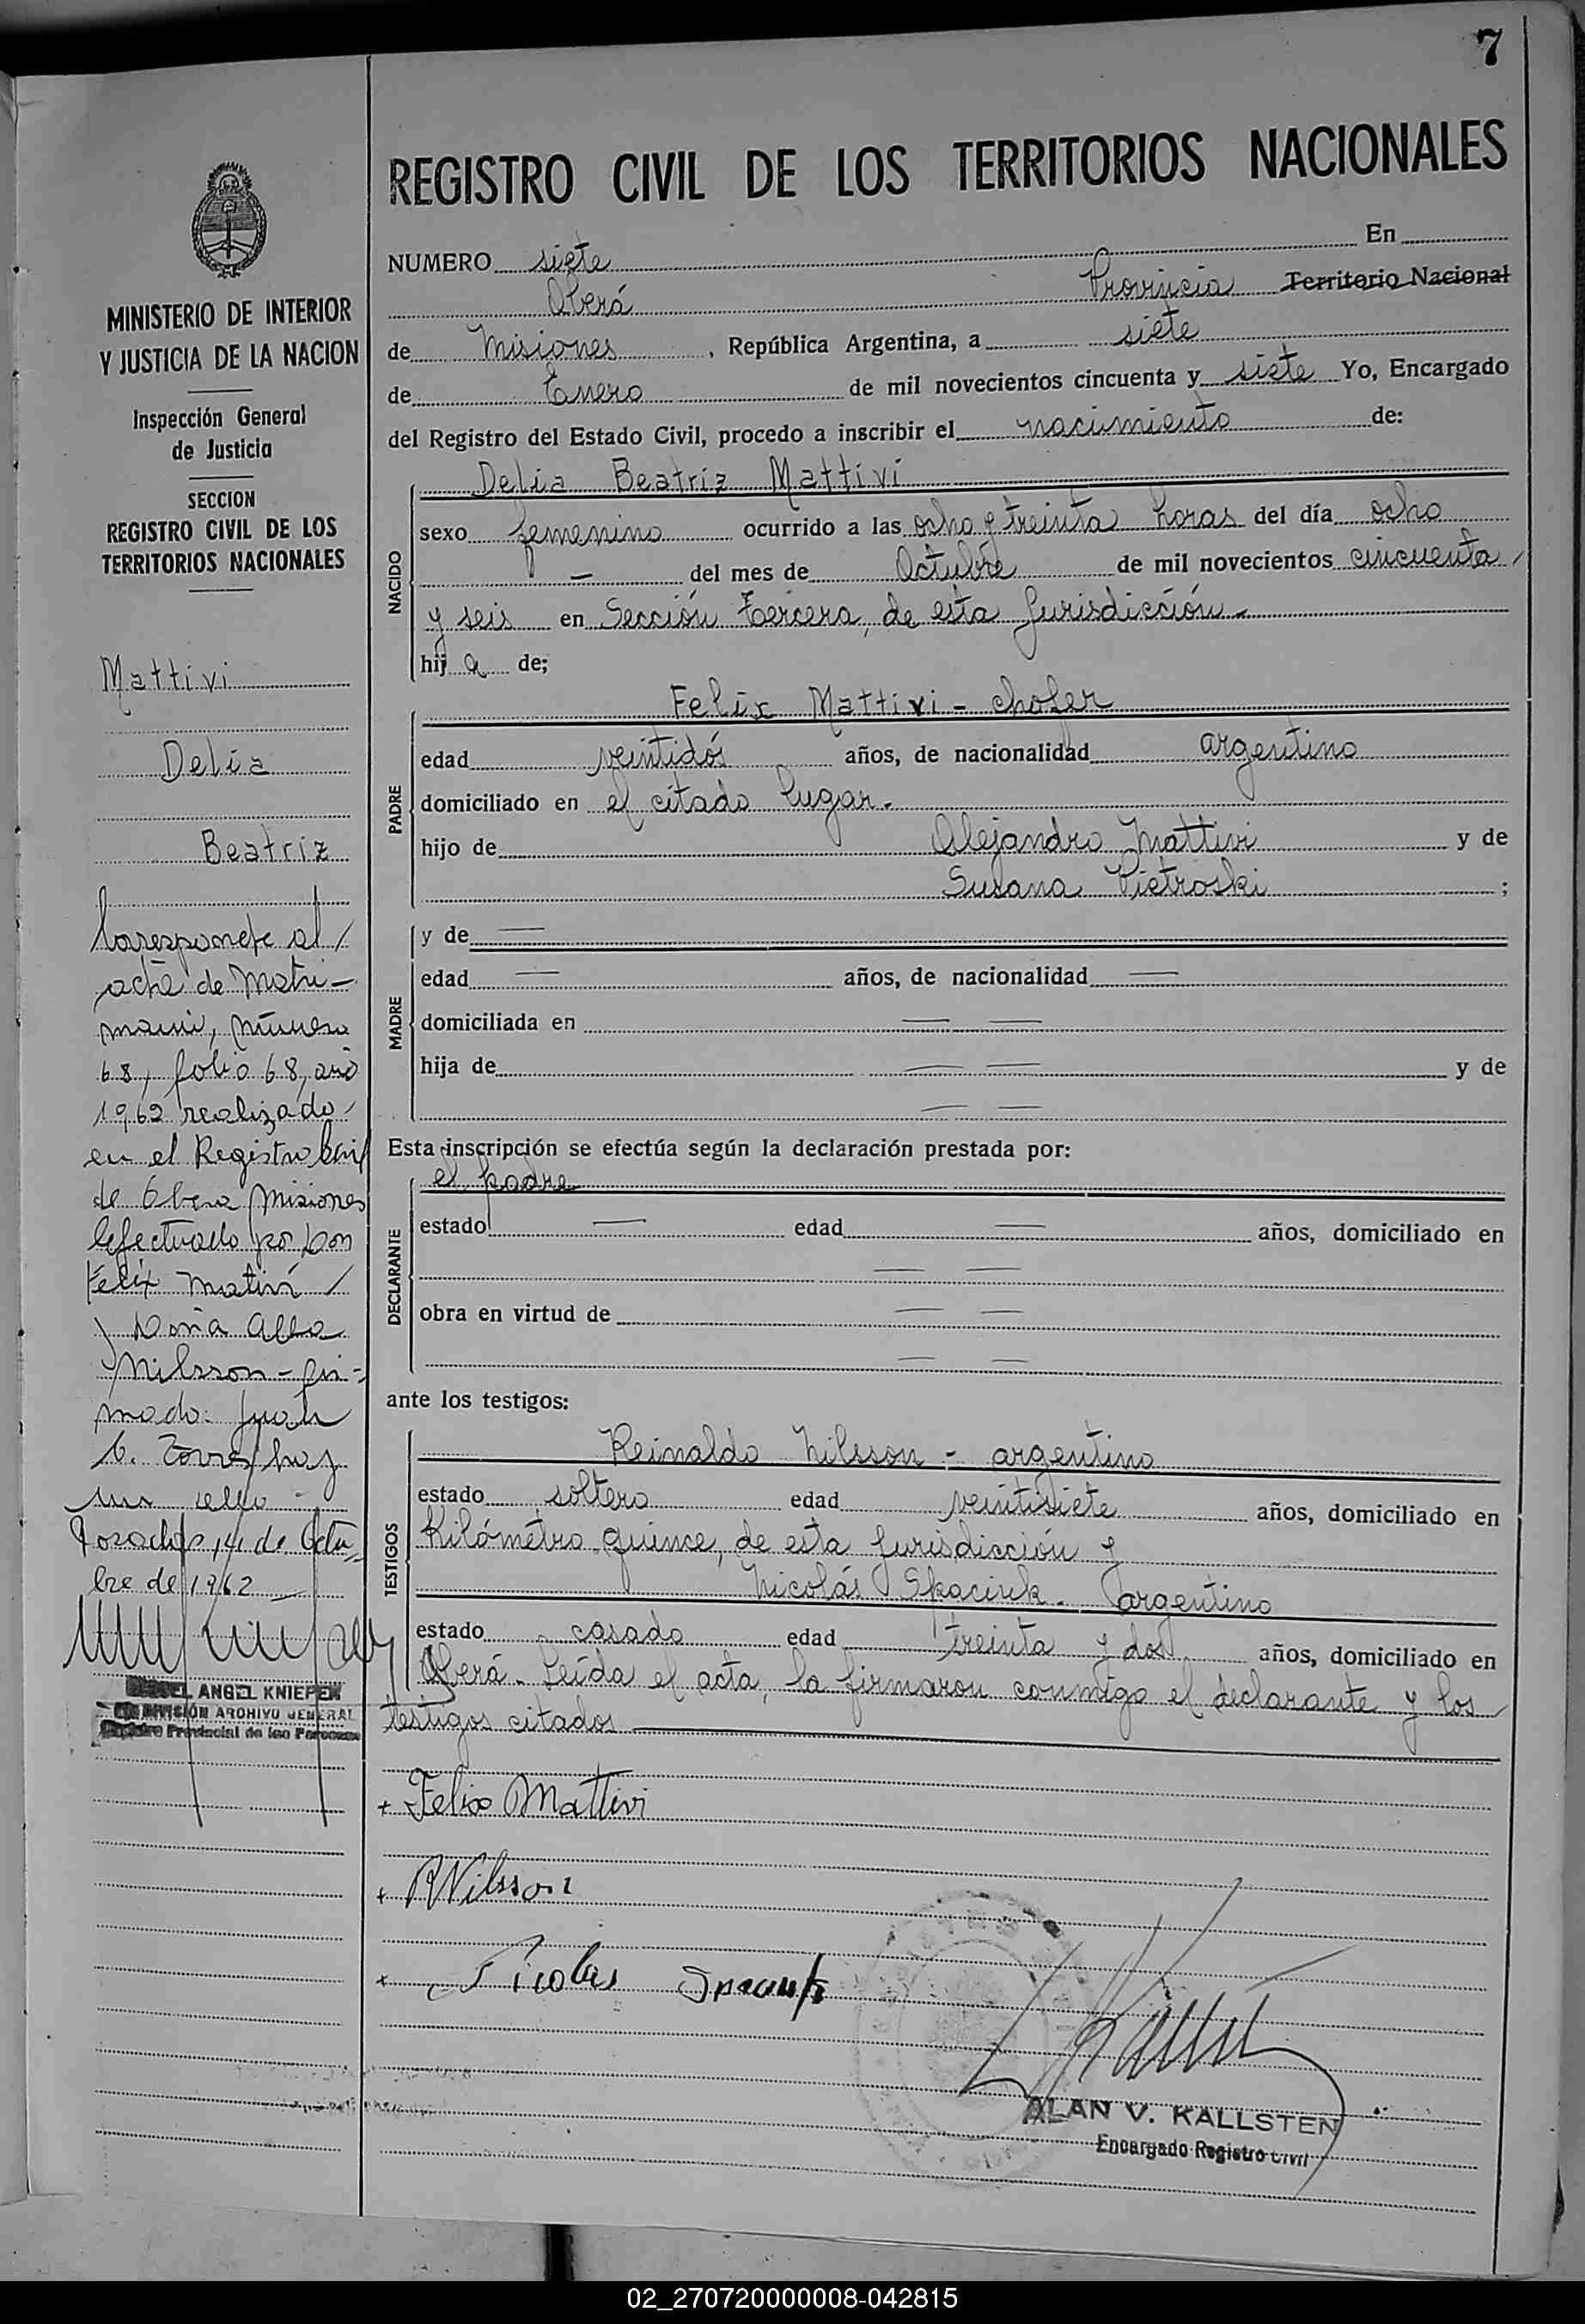 7
REGISTRO CIVIL DE LOS TERRITORIOS NACIONALES
MINISTERIO DE INTERIOR
Y JUSTICIA DE LA NACION
Inspección General
de Justicia
SECCION
REGISTRO CIVIL DE LOS
TERRITORIOS NACIONALES
Mattivi
Delia
Beatriz
Corresponde al
acta de Matri-
monio, número
68, folio 68, año
1962 realizado
en el Registro Civil
de Obera Misiones
Efectuado por Don
Felix Mativi
y Doña Alba
Nilsson - fir-
mado: Juan
C. Torres hay
un sello -
Posadas 14 de Octu-
bre de 1962
MIGUEL ANGEL KNIEPEN
DIVISIÓN ARCHIVO GENERAL
Registro Provincial de las Personas
NUMERO siete En
Oberá Provincia Territorio Nacional
de Misiones, República Argentina, a siete
de Enero de mil novecientos cincuenta y siete Yo, Encargado
del Registro del Estado Civil, procedo a inscribir el nacimiento de:
NACIDO
Delia Beatriz Mattivi
sexo femenino ocurrido a las ocho y treinta horas del día ocho
— del mes de Octubre de mil novecientos cincuenta
y seis en Sección tercera, de esta Jurisdicción.-
hij a de;
PADRE
Felix Mattivi - chofer
edad veintidós años, de nacionalidad argentino
domiciliado en el citado lugar.
hijo de Alejandro Mattivi y de
Susana Pietroski ;
MADRE
y de —
edad — años, de nacionalidad —
domiciliada en — —
hija de — — y de
— —
Esta inscripción se efectúa según la declaración prestada por:
DECLARANTE
el padre
estado — edad — años, domiciliado en
— —
obra en virtud de — —
— —
ante los testigos:
TESTIGOS
Reinaldo Nilsson - argentino
estado soltero edad veintisiete años, domiciliado en
Kilómetro quince, de esta Jurisdicción y
Nicolás argentino
estado casado edad treinta y dos años, domiciliado en
Oberá. Leída el acta, la firmaron conmigo el declarante y los
testigos citados
+ Felix Mattivi
+ RNilsson
+ Nicolas
ALAN V. KALLSTEN
Encargado Registro Civil
02_270720000008-042815